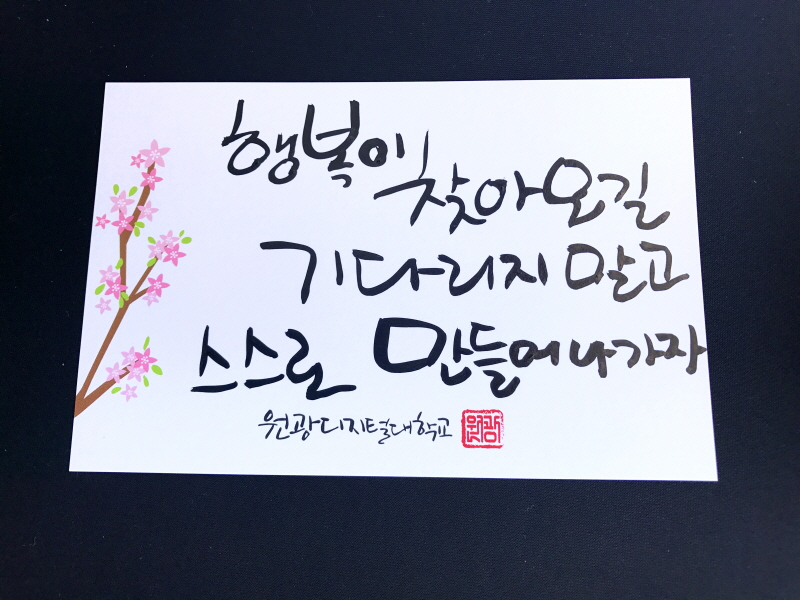 행복이 찾아오길
기다리지 말고
스스로 만들어 나가자
원광디지털대학교
원광